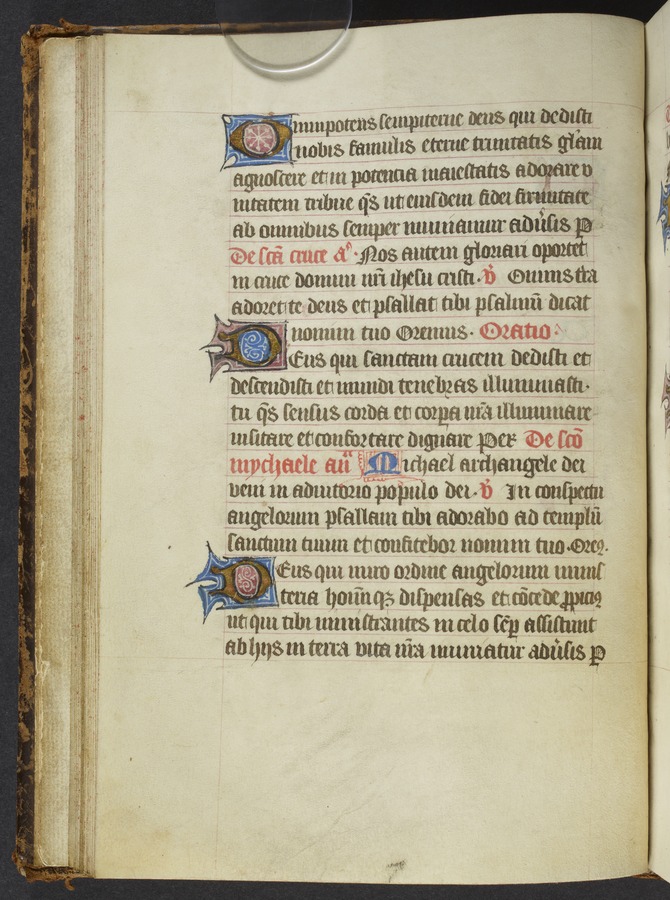 Omnipotens sempiterne deus qui dedisti
nobis famulis eterne trinitatis gl̃am
agnoscere et in potencia maiestatis adorare v
nitatem tribue q̃s ut eiusdem fidei firmitate
ab omnibus semper muniamur adũsis p
De sc̃a cruce aͣ. Nos autem gloriari oportet
in cruce domini nr̃i ihesu cristi. v̉ Omnis tr̃a
adoret te deus et psallat tibi psalmũ dicat
nomini tuo Oremus. Oratio:
Deus qui sanctam crucem dedisti et
descendisti et mundi tenebras illuminasti.
tu q̃s sensus corda et corp̃a nr̃a illuminare
visitare et confortare dignare Per De sc̃o
mychaele añ Michael archangele dei
veni in adiutorio populo dei. v̉ In conspectu
angelorum psallam tibi adorabo ad templũ
sanctum tuum et confitebor nomini tuo. Orem̃.
Deus qui miro ordine angelorum minis
teria hoĩm qꝫ dispensas et cõcede ꝓpicius
ut qui tibi ministrantes in celo sẽp assistunt
ab hijs in terra vita nr̃a muniatur adũsis p